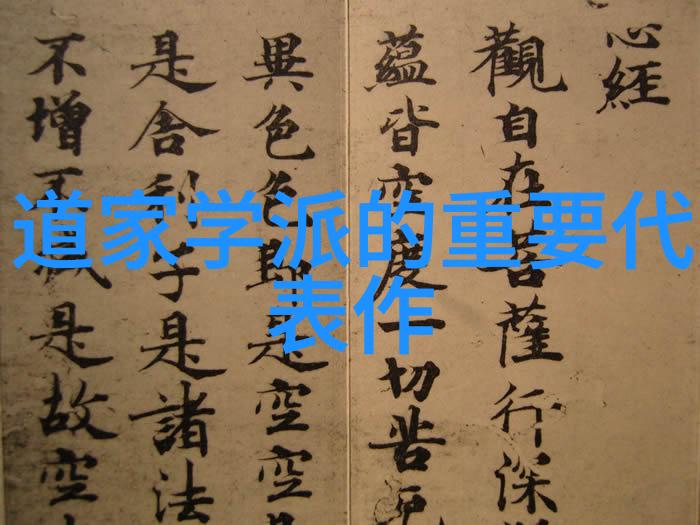 道家学派的重要代
表作
心經
觀自在菩薩行深
蘊皆空度一切苦厄
異色色即是空空是
是舍利子是諸法
不增不減是故空